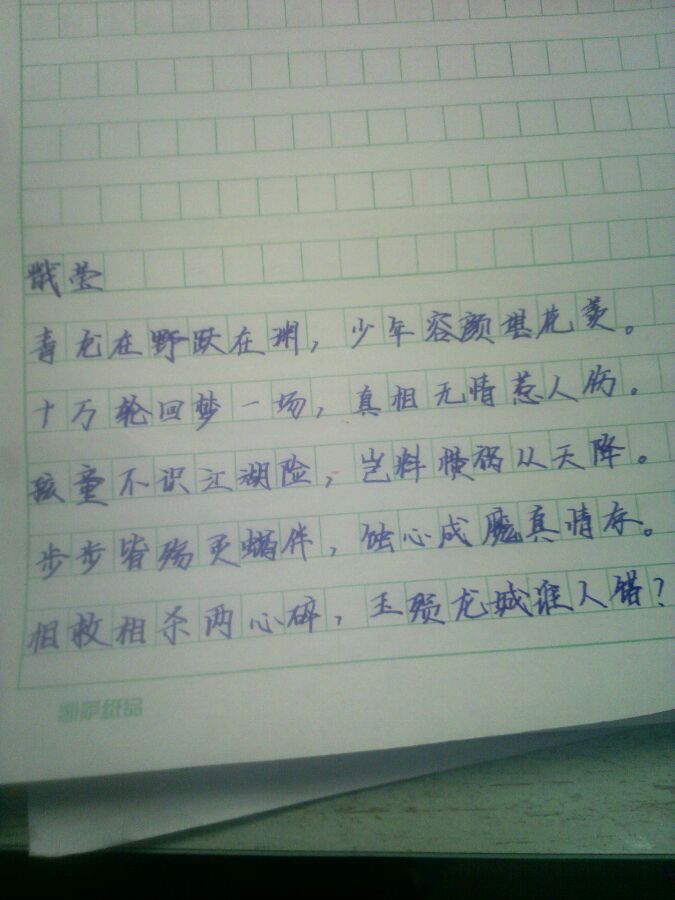 莹
青龙在野跃在渊，少年容颜堪花羡。
十万轮回梦一场，真相无情惹人伤。
孩童不识江湖险，岂料横祸从天降。
步步皆殇灵蝎伴，蚀心成魔真情存。
相救相杀两心碎，玉殒龙城谁人错？
纸品